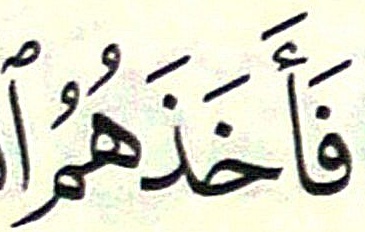 فَأَخَذَهُمُ ٱ